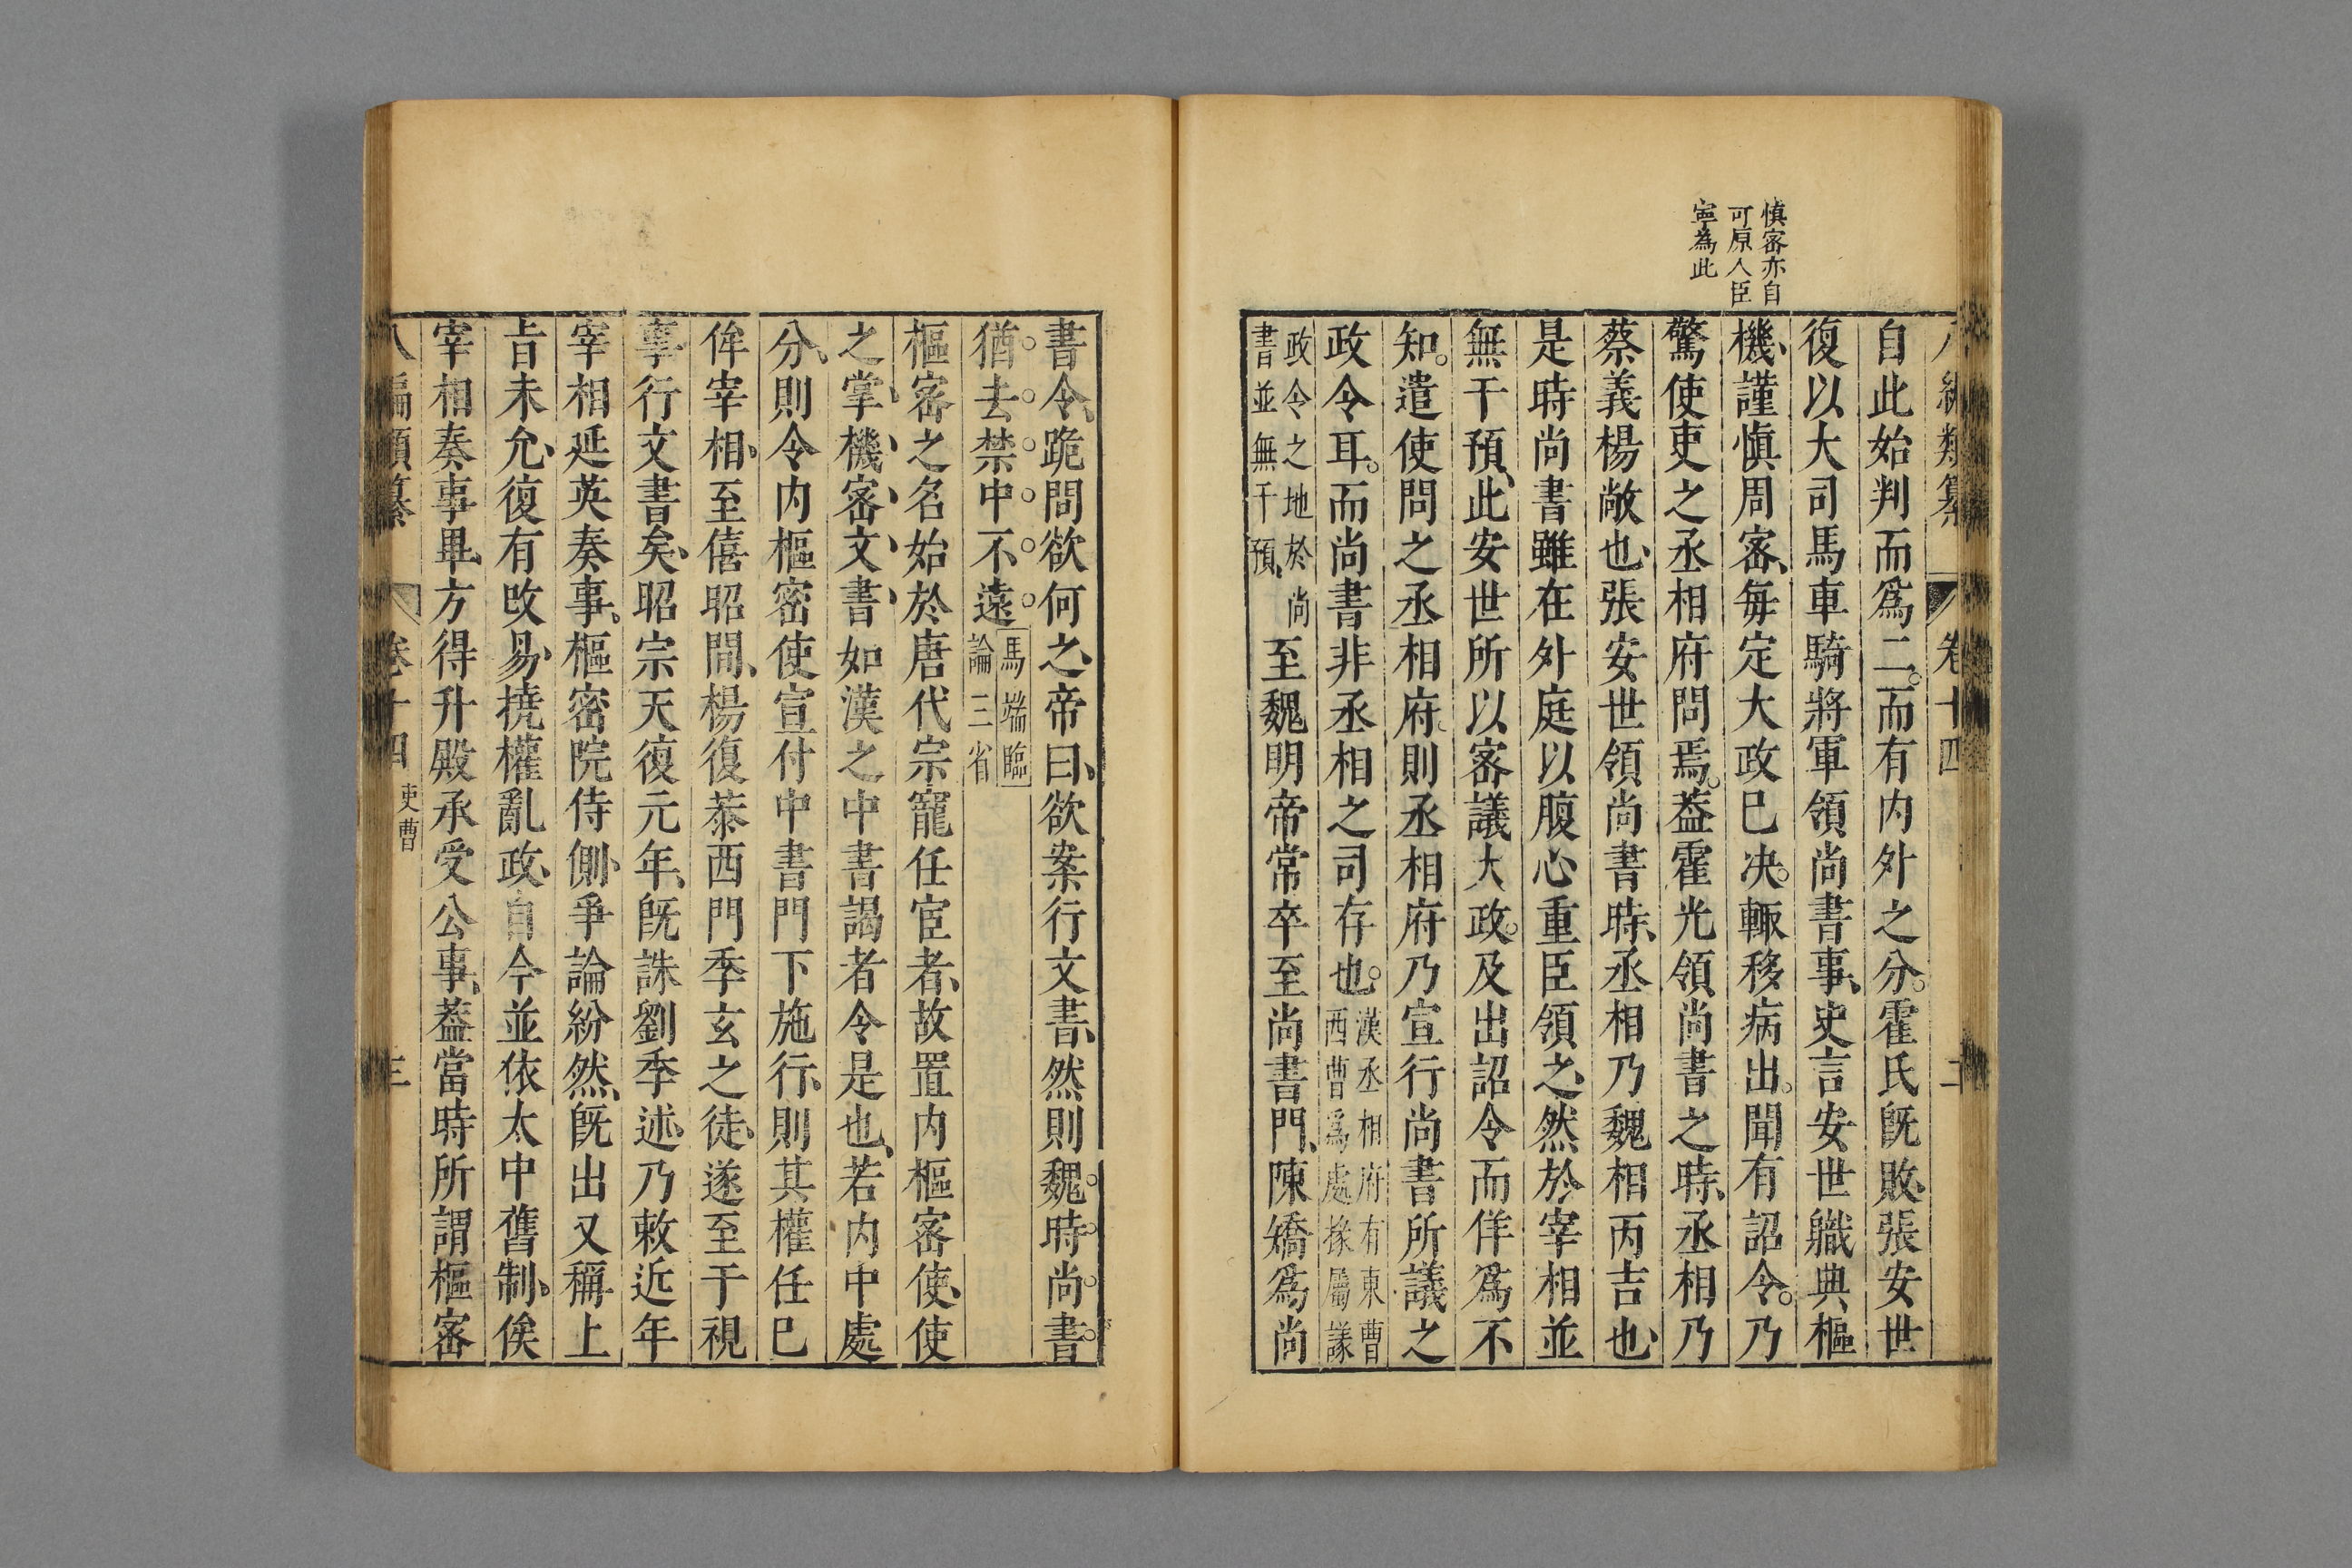 八編類纂 卷十四 二
慎密亦自
可原人臣
寧為此
自此始判而爲二。而有内外之分。霍氏既敗、張安世
復以大司馬車騎將軍領尚書事、史言安世職典樞
機、謹慎周密、毎定大政巳决。輒移病出。聞有詔令。乃
驚使吏之丞相府問焉。葢霍光領尚書之時、丞相乃
蔡義楊敞也、張安世領尚書時、丞相乃魏相丙吉也、
是時尚書雖在外庭以腹心重臣領之、然於宰相並
無干預、此安世所以密議大政。及出詔令而佯爲不
知。遣使問之丞相府。則丞相府乃宣行尚書所議之
政令耳。而尚書非丞相之司存也。漢丞相府有東曹
西曹爲處掾屬議
政令之地於尚
書並無干預、至魏明帝常卒至尚書門、陳矯爲尚
書令、跪問欲何之、帝曰、欲案行文書、然則魏時尚書
猶去禁中不遠。馬端臨
論三省
樞密之名始於唐代宗寵任宦者、故置内樞密使、使
之掌、機、密、文、書、如漢之中書謁者令是也、若内中處
分、則令内樞密使宣付中書門下施行、則其權任巳
侔宰相、至僖昭間、楊復恭西門季玄之徒、遂至于視
事行文書矣、昭宗天復元年、既誅劉季述、乃敕近年
宰相延英奏事。樞密院侍側、爭論紛然、既出又稱上
㫖未允、復有攺易、撓權亂政、自今並依太中舊制、俟
宰相奏事畢、方得升殿承受公事、葢當時所謂樞密
八編類纂 卷十四 吏曹 三